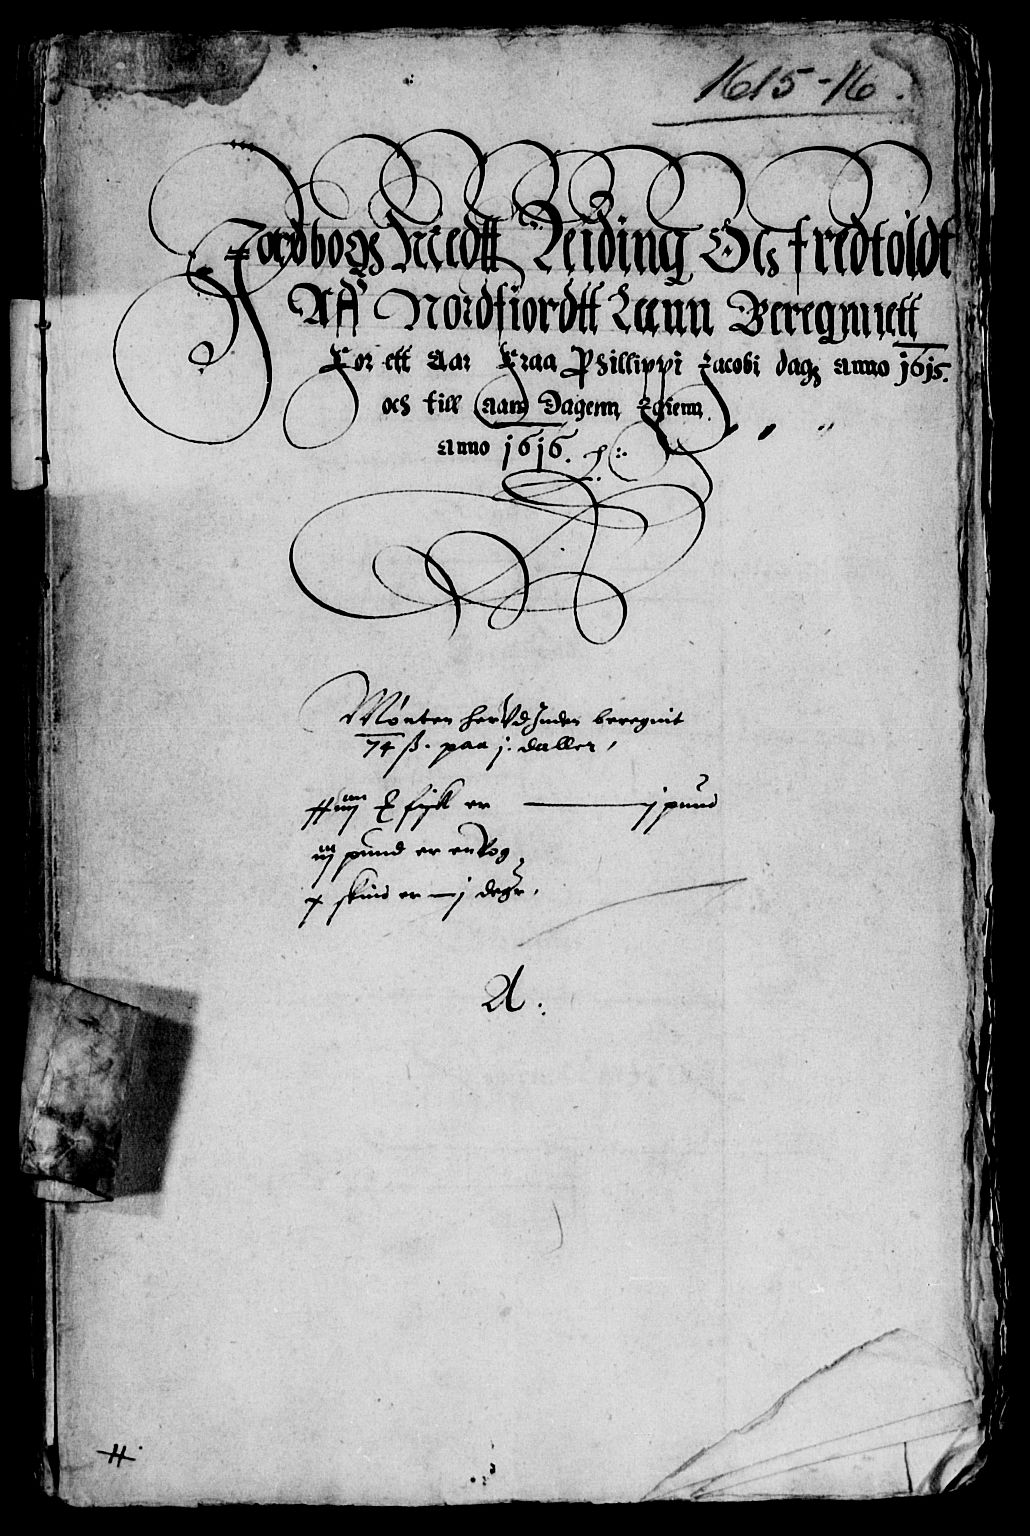 1615-16.
Jordbogh Medtt Leiding Och fredtoldt
Aff Nordfiordtt Lænn Beregnnett
For ett Aar Fraa Phillippi Jacobi dagh anno 1615.
och till Aam Dagenn Igienn.
anno 1616.
Mønten her Vdjnden beregnit
74 ß. paa j. daller,
fisk er j pund
iij pund er en Vog
x skind er j degr,
A.
H